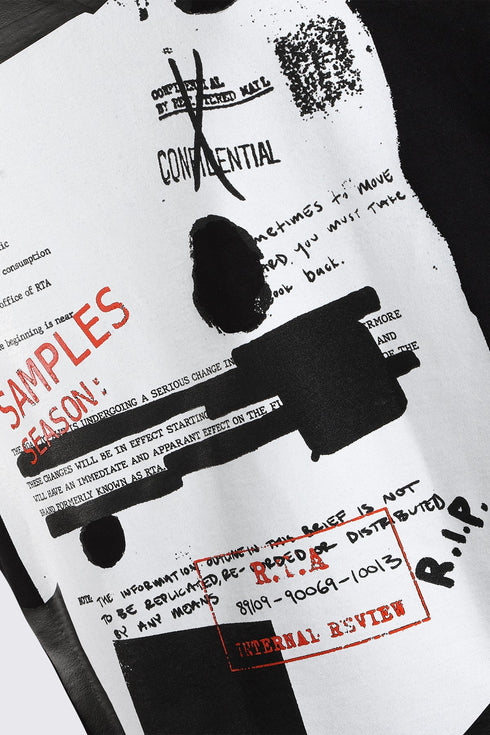 CONFIDENTIAL
BY REGISTERED MAIL
CONFIDENTIAL
metimes to move
you must take
ook back.
tic
consumption
office of RTA
e beginning is near
SAMPLES
SEASON:
IS UNDERGOING A SERIOUS CHANGE IN
RMORE
AND
THE
THESE CHANGES WILL BE IN EFFECT STARTING
WILL HAVE AN IMMEDIATE AND APPARANT EFFECT ON THE FI
HAND FORMERLY KNOWN AS RTA.
NOTE THE INFORMATION OUTLINE IN THIS BRIEF IS NOT
TO BE REPLICATED, RE-ORDED OR DISTRIBUTED
BY ANY MEANS
R.I.P.
R.T.A
89109-90069-10013
INTERNAL REVIEW